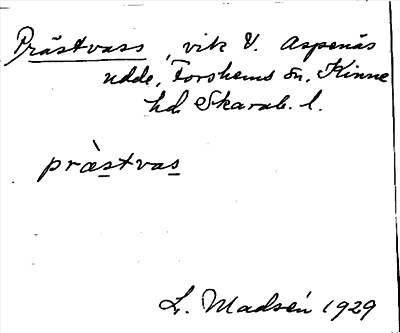 Prästvass, vik V. Aspenäs
udde, Forshems sn. Kinne
hd Skarab. l.
pràstvas
L. Madsén 1929